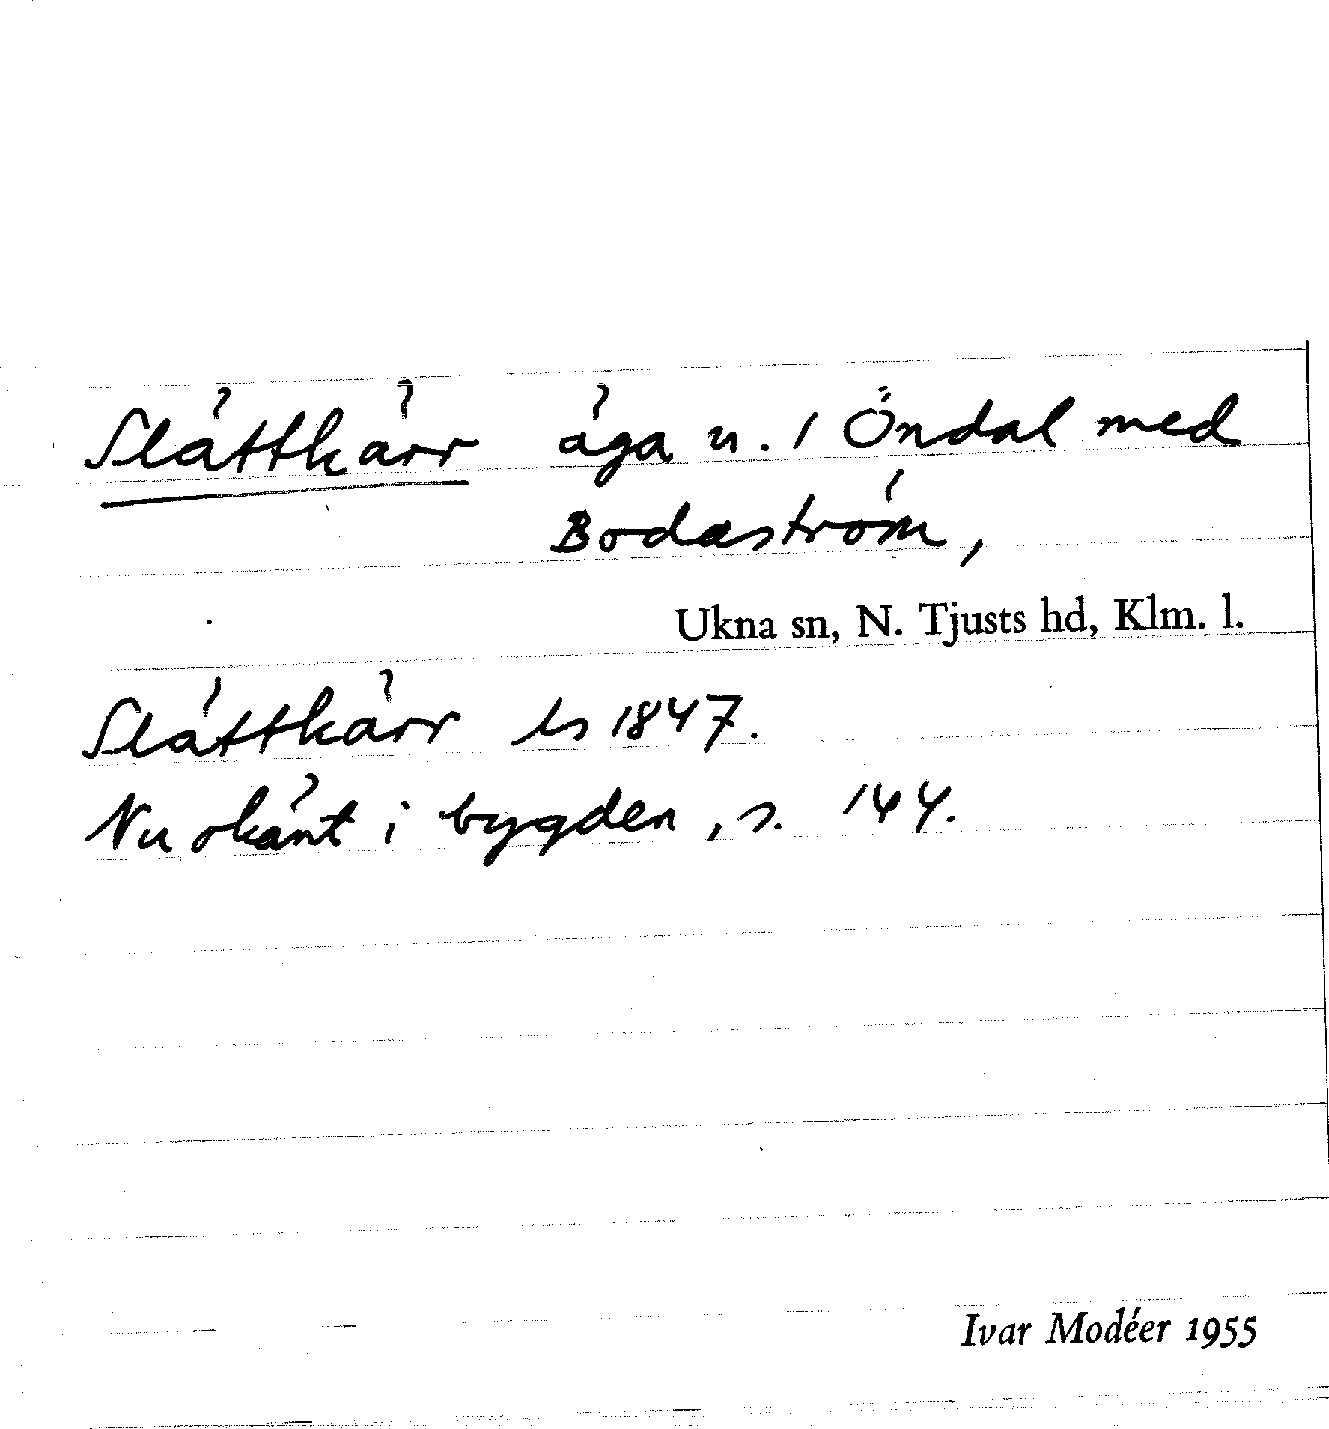 Slättkärr äga u. / Öndal med
Bodaström,
Ukna sn, N. Tjusts hd, Klm. l.
Slättkärr ls 1847.
Nu okänt i bygden, s. 144.
Ivar Modéer 1955